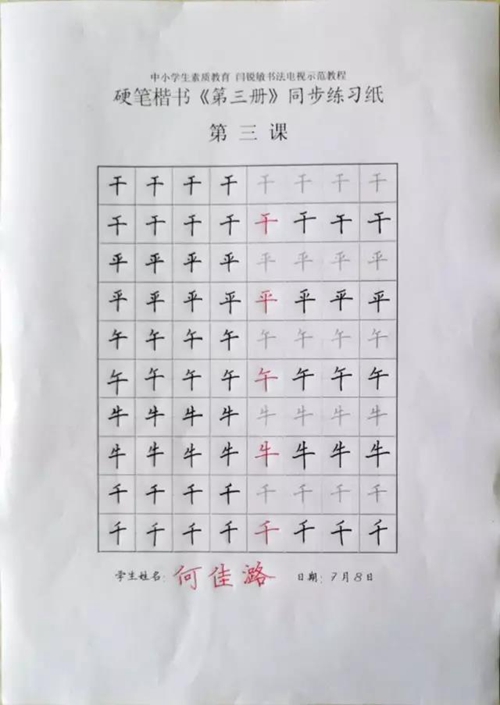 中小学生素质教育 闫锐敏书法电视示范教程
硬笔楷书《第三册》同步练习纸
第三课
干干干干干干干干
干干干干干干干干
平平平平平平平平
平平平平平平平平
午午午午午午午午
午午午午午午午午
牛牛牛牛牛牛牛牛
牛牛牛牛牛牛牛牛
千千千千千千千千
千千千千千千千千
学生姓名:何佳潞 日期:7月8日